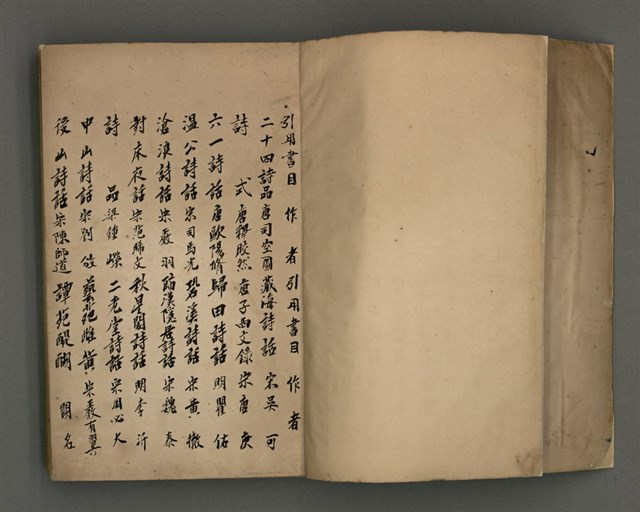 引用書目 作者 引用書目 作者
二十四詩品 唐司空圖 藏海詩話 宋吳可
詩式 唐釋皎然 唐子西文錄 宋唐庚
六一詩話 唐歐陽脩 歸田詩話 明瞿佑
溫公詩話 宋司馬光 䂬溪詩話 宋黃徹
滄浪詩話 宋嚴羽 臨漢隱居詩話 宋魏泰
對床夜話 宋范晞文 秋星閣詩話 明李沂
詩品 梁鍾嶸 二老堂詩話 宋周必大
中山詩話 宋劉攽 藝苑雌黃 宋嚴有翼
後山詩話 宋陳師道 譚苑醍醐 闕名